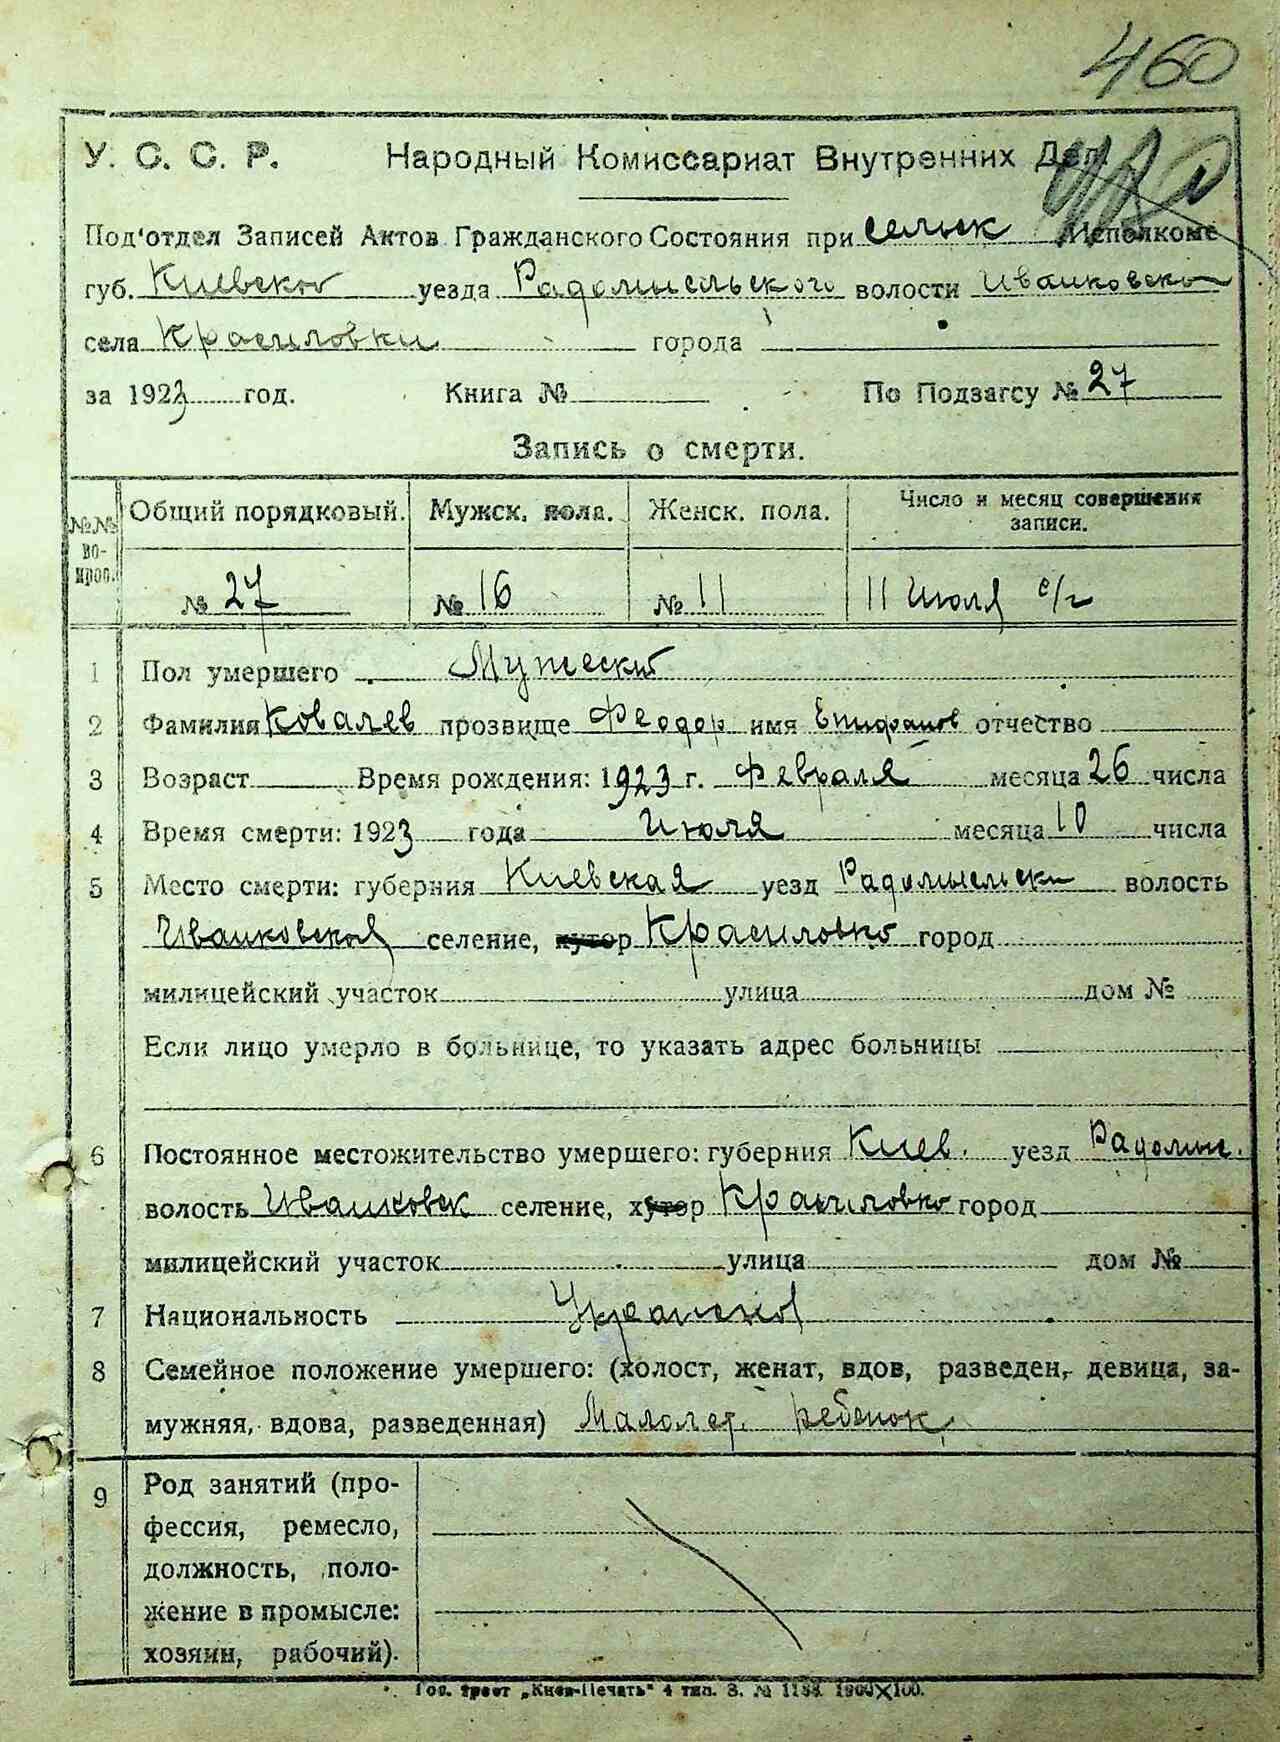 460
У. С. С. Р. Народный Комиссариат Внутренних Дел.
Под'отдел Записей Актов Гражданского Состояния при сельск Исполкоме
губ. Киевской уезда Радомысльского волости Иванковской
села Красиловки города
за 1923 год. Книга № По Подзагсу № 27
Запись о смерти.
№№ вопрос. Общий порядковый. Мужск. пола. Женск. пола. Число и месяц совершения записи.
№ 27 № 16 № 11 11 Июля с/г
1 Пол умершего Мужеский
2 Фамилия Ковалев прозвище Феодор имя Епифанов отчество
3 Возраст Время рождения: 1923 г. Февраля месяца 26 числа
4 Время смерти: 1923 года Июля месяца 10 числа
5 Место смерти: губерния Киевская уезд Радомысльски волость
Иванковской селение, хутор Красиловко город
милицейский участок улица дом №
Если лицо умерло в больнице, то указать адрес больницы
6 Постоянное местожительство умершего: губерния Киев. уезд Радомы.
волость Иванковск селение, хутор Красиловко город
милицейский участок улица дом №
7 Национальность
8 Семейное положение умершего: (холост, женат, вдов, разведен, девица, за-
мужняя, вдова, разведенная) Малолет. ребенок
9 Род занятий (про-
фессия, ремесло,
должность, поло-
жение в промысле:
хозяин, рабочий).
Гос. трест „Киев-Печать" 4 тип. З. № 1188. 1900×100.